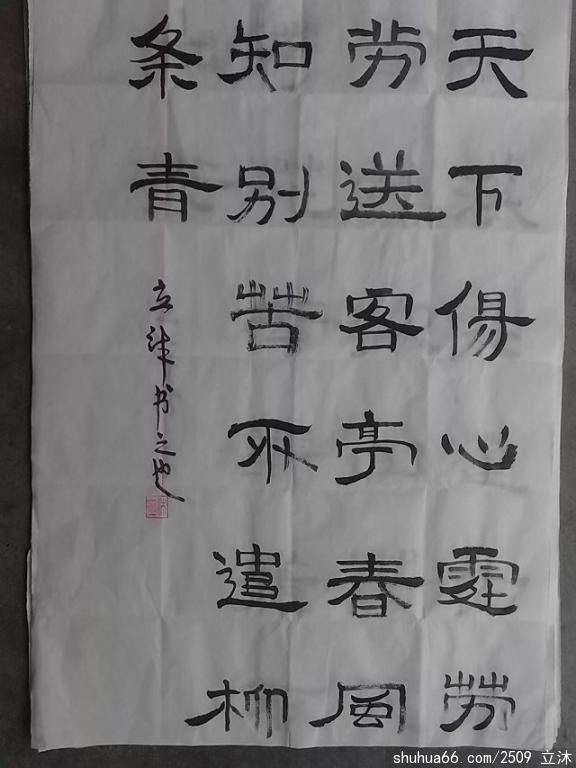 天下傷心處劳
劳送客亭春風
知别苦不遣柳
条青
立 书之也
shuhua66.com/2509 立沐